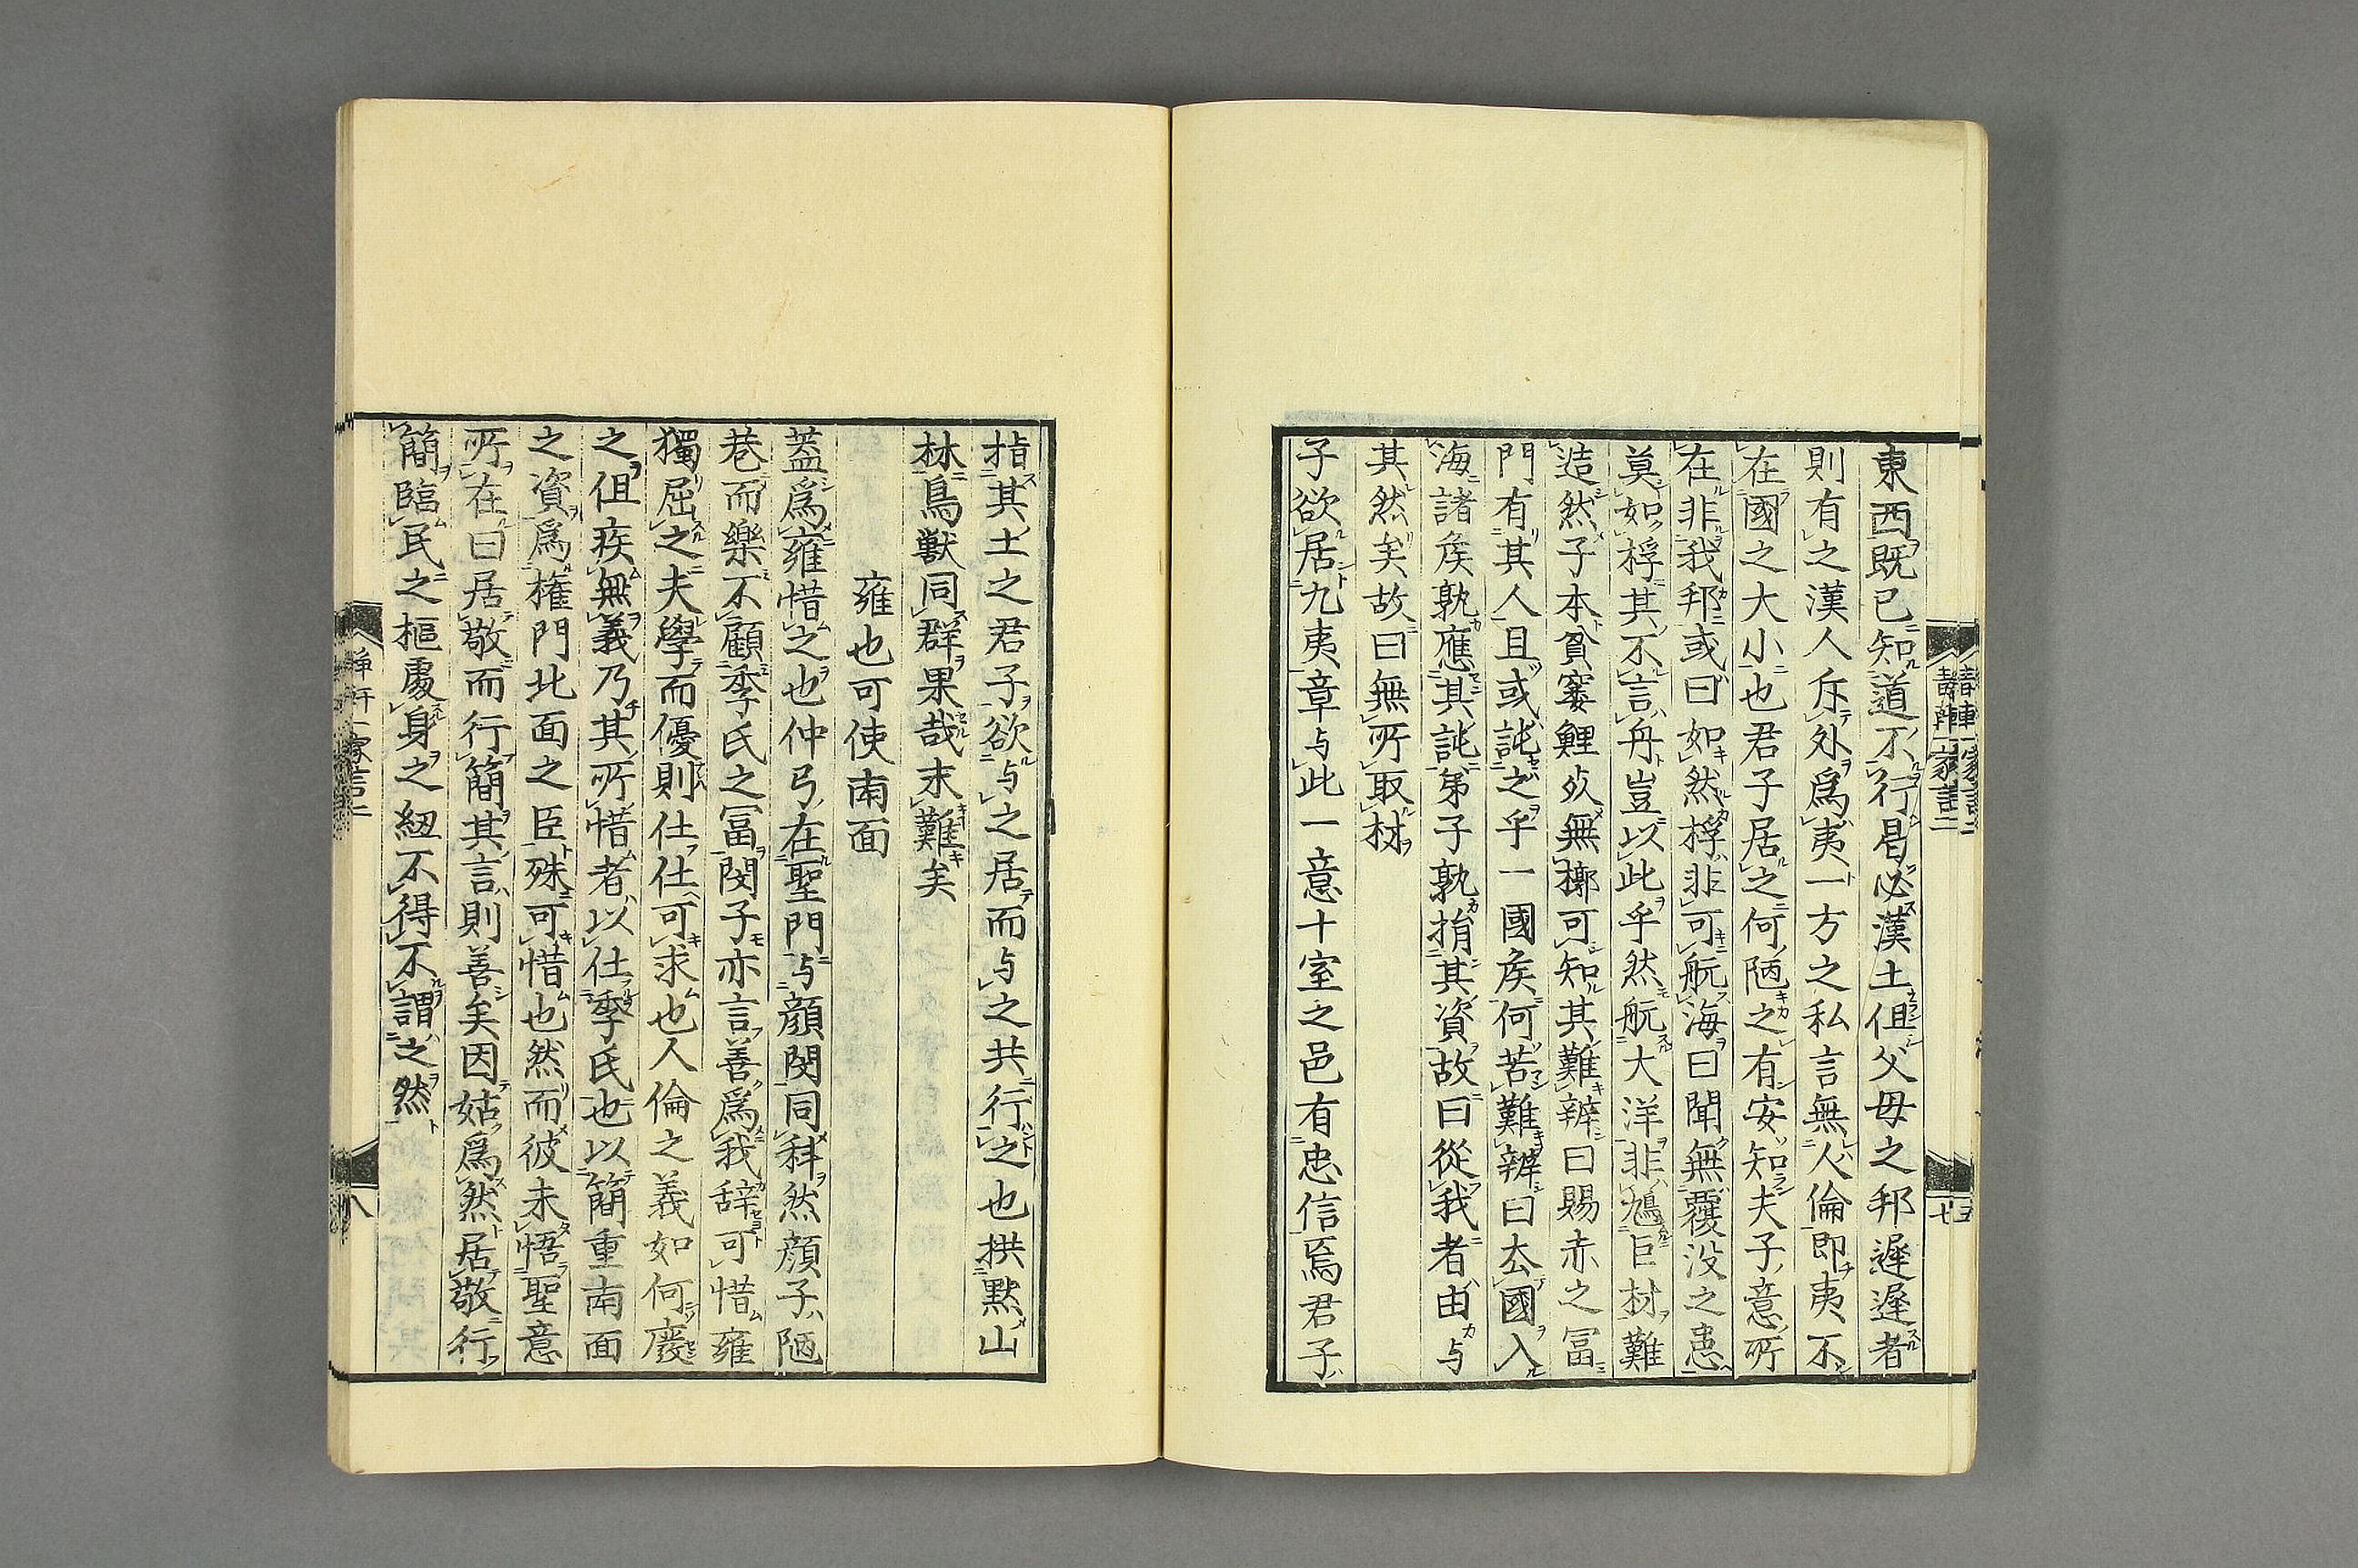 東西既已知道不行曷必漢土但父母之邦遲遲者
則有之漢人斥外爲夷一方之私言無人倫即夷不
在國之大小也君子居之何陋之有安知夫子意所
在非我邦或曰如然桴非可航海曰聞無覆没之患
莫如桴其不言舟豈以此乎然航大洋非鳩巨材難
造然子本貧寠鯉死無槨可知其難辨曰賜赤之冨
門有其人且或託之乎一國矦何苦難辨曰去國入
海諸矦孰應其託弟子孰捐其資故曰從我者由与
其然矣故曰無所取材
子欲居九夷章与此一意十室之邑有忠信焉君子
指其土之君子欲与之居而与之共行之也拱黙山
林鳥獣同群果哉末難矣
雍也可使南面
葢爲雍惜之也仲弓在聖門与顔閔同科然顔子陋
巷而樂不顧季氏之冨閔子亦言善爲我辞可惜雍
獨屈之夫學而優則仕仕可求也人倫之義如何廢
之但疾無義乃其所惜者以仕季氏也以簡重南面
之資爲權門北面之臣殊可惜也然而彼未悟聖意
所在曰居敬而行簡其言則善矣因姑爲然居敬行
簡臨民之樞處身之紐不得不謂之然